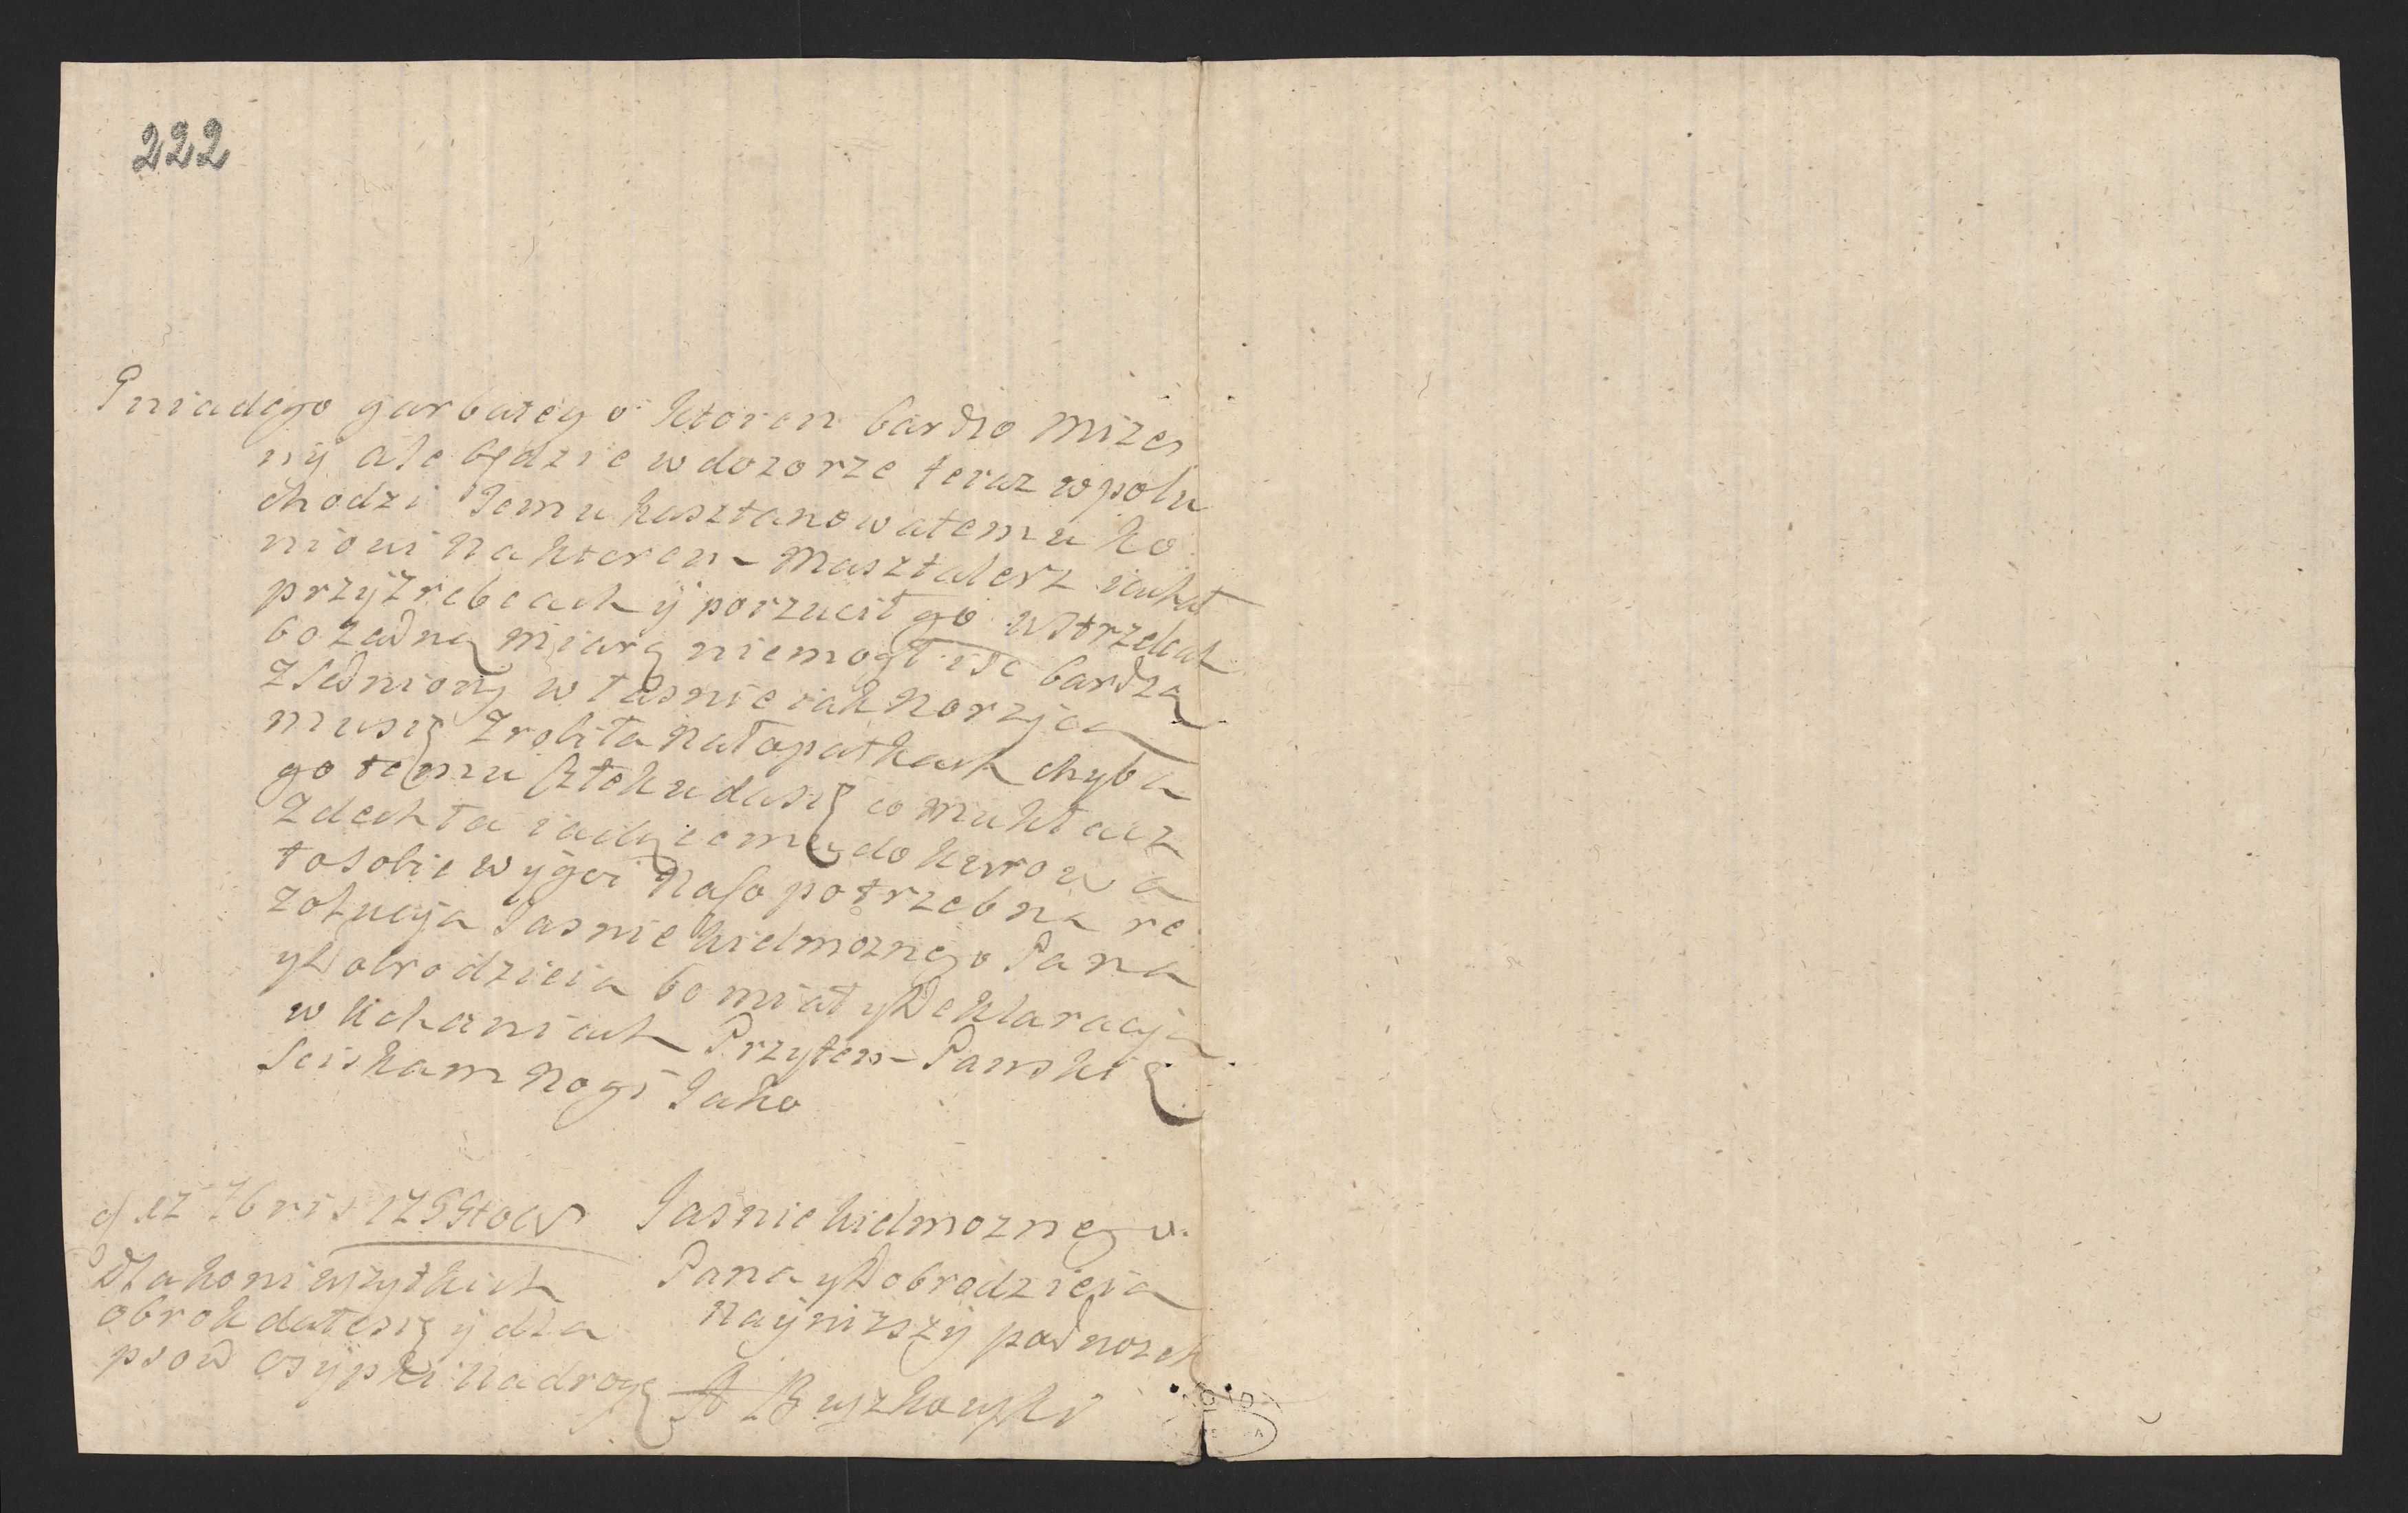 222
Gniadego garbatego ktoren bardzo mizer
ny ale będzie w dozorze teraz w polu
chodzi Jemu kasztanowatemu ko
niowi na ktoren Masztalerz iachał
przy zrebcach y porzucił go w Strzelcach
bo zadną miarą niemogł isc bardzą
zSedniony własnie iak norzyca
musię zrobiła na łopatkach chyba
go temu
zdechła do kurowa
to sobie naso potrzebna re
zolucya Jasnie Wielmoznego Pana
y Dobrodzieia bo miał y Deklaracyą
w Uchaniach Przytem Panskie
Sciskam nogi Jako
d 12 7bris 1759 Jasnie Wielmoznego
Pana y Dobrodzieia
naynizszy podnozek
A Buyzkowski
Dla koni wszytkich
obrok dałesię y dla
psow osypki na drogę